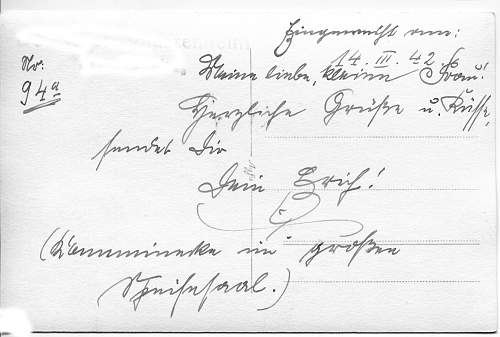 Eingereicht am:
14. III. 42.
No:
94a
Meine liebe, kleine Frau!
Herzliche Grüße u. Küsse,
sendet Dir
Dein Erich!
(Kaminecke im großen
Speisesaal.)